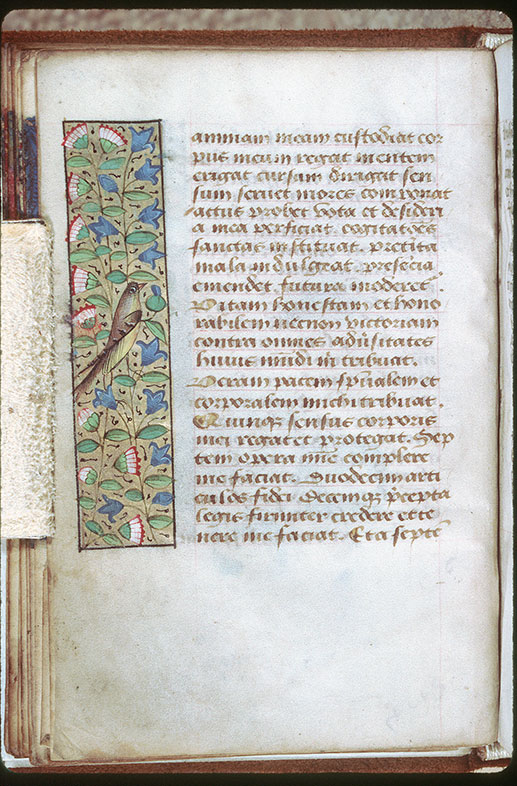 animam meam custodiat cor
pus meum regat mentem
erigat cursam dirigat sen
sum seruet mores componat
actus probet vota et desideri
a mea perficiat cogitatōes
sanctas instituat. pretita
mala indulgeat. presēcia
emendet. futura moderet.
Vitam honestam et hono
rabilem necnon victoriam
contra omnes adūsitates
huius mūdi m tribuat.
Veram pacem spūalem et
corporalem michi tribuat.
Quinque sensus corporis
mei regat et protegat. Sep
tem opera mīe complere
me faciat. Duodecim arti
culos fidei Decemq; p̄cepta
legis firmiter credere et te
nere me faciat. Et a septē